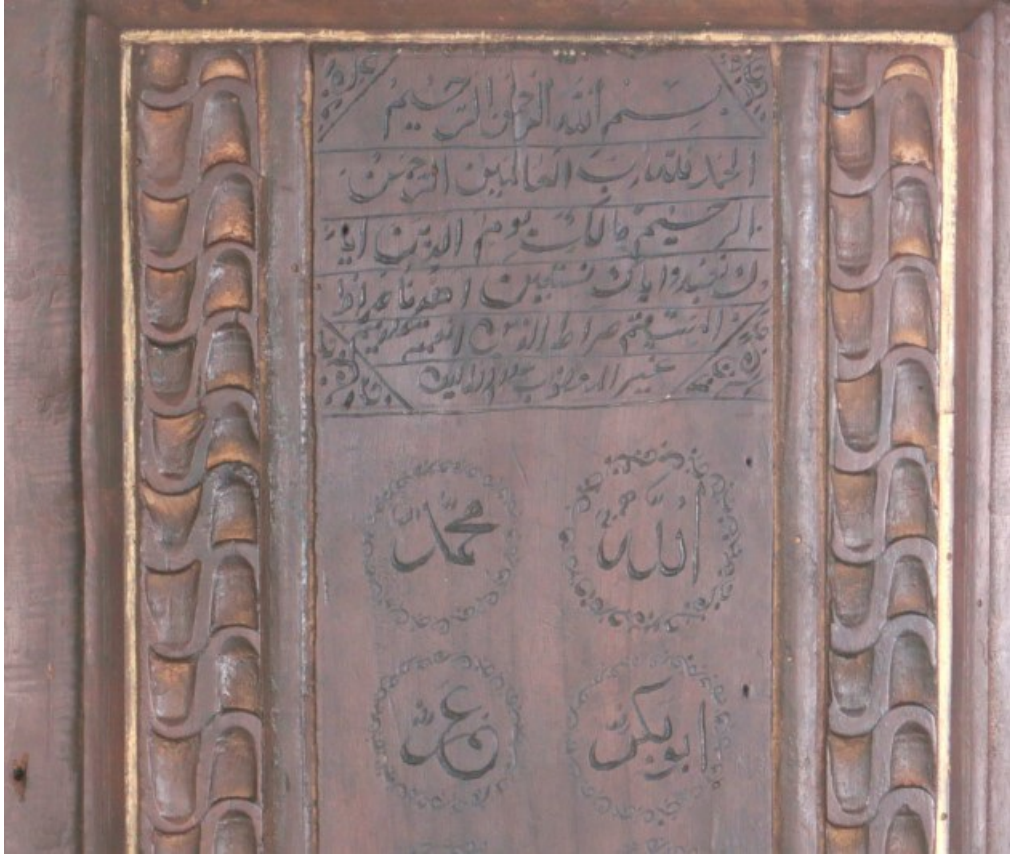 بسم الله الرحمن الرحيم
الحمد لله رب العالمين الرحمن
الرحيم مالك يوم الدين ايا
ك نعبد واياك نستعين اهدنا صراط
المستقيم صراط الذين انعمت عليهم
غير المغضوب
الله محمد
ابوبكر عمر